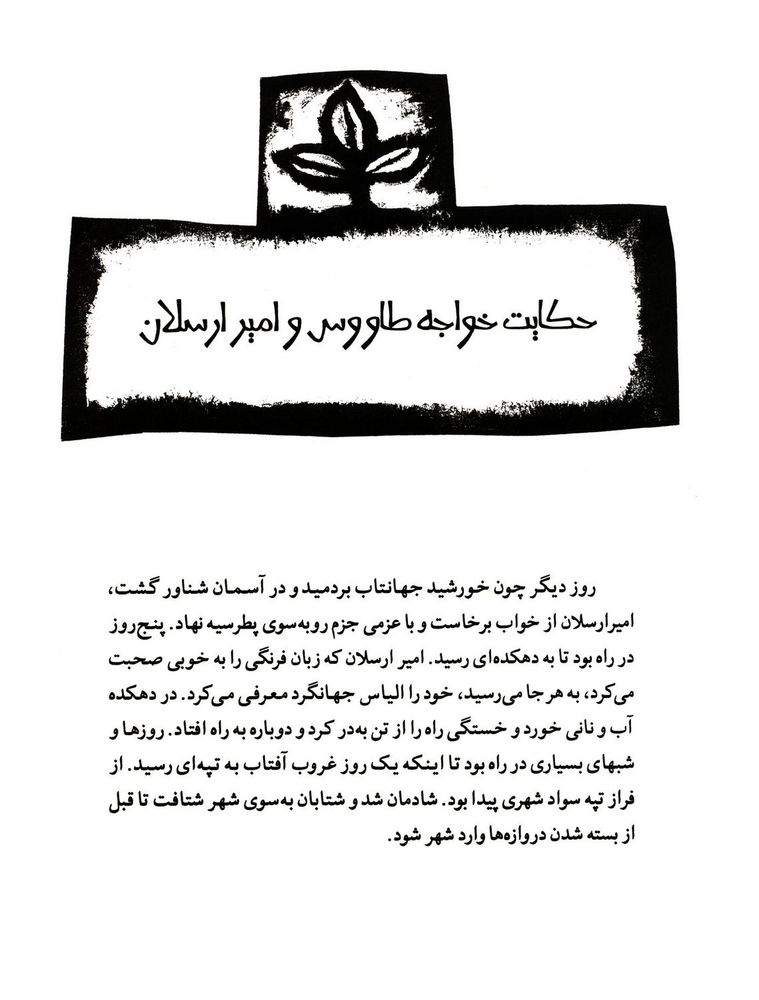 حکایت خواجه طاووس و امیر ارسلان
روز دیگر چون خورشید جهانتاب بردمید و در آسمان شناور گشت،
امیرارسلان از خواب برخاست و با عزمی جزم رو به‌سوی پطرسیه نهاد. پنج‌روز
در راه بود تا به دهکده‌ای رسید. امیر ارسلان که زبان فرنگی را به خوبی صحبت
می‌کرد، به هر جا می‌رسید، خود را الیاس جهانگرد معرفی می‌کرد. در دهکده
آب و نانی خورد و خستگی راه را از تن به‌در کرد و دوباره به راه افتاد. روزها و
شبهای بسیاری در راه بود تا اینکه یک روز غروب آفتاب به تپه‌ای رسید. از
فراز تپه سواد شهری پیدا بود. شادمان شد و شتابان به‌سوی شهر شتافت تا قبل
از بسته شدن دروازه‌ها وارد شهر شود.